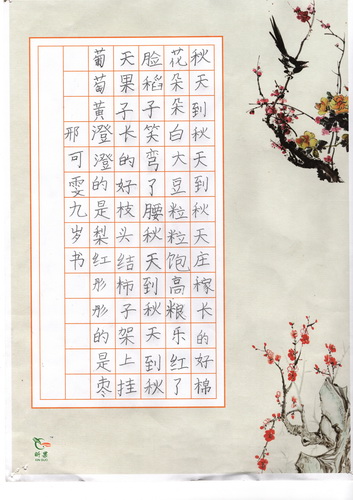 秋天到秋天到秋天庄稼长的好棉
花朵朵白大豆粒粒饱高粮乐红了
脸稻子笑弯了腰秋天到秋天到秋
天果子长的好枝头结柿子架上挂
葡萄黄澄澄的是梨红彤彤的是枣
邢可雯九岁书